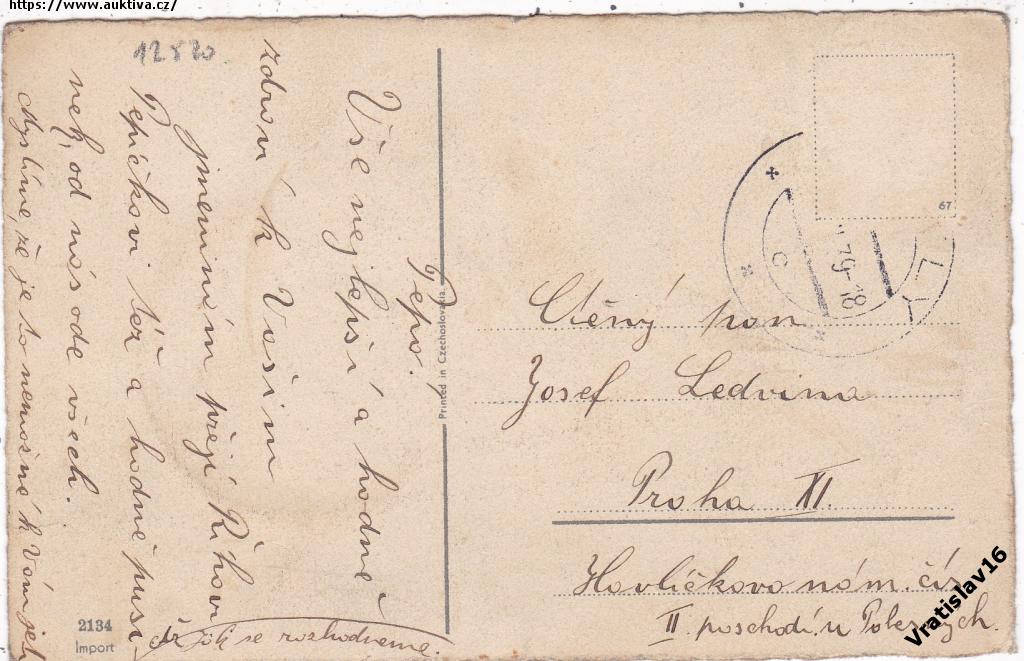 https://www.auktiva.cz/
12820
Pepo!
Vše nejlepší a hodně
zdraví k Vašim
jmeninám přejí Říhovi
Pepíčkovi též a hodně pusi-
nek, od nás ode všech.
Myslíme, že je to nemožné k Vám jeti
až jak se rozhodneme.
Printed in Czechoslovakia
2134
Import
67
29-18
LY
Ctěný pan
Josef Ledvina
Praha XI.
Havlíčkovo nám. čís
II. poschodí, u
Vratislav16